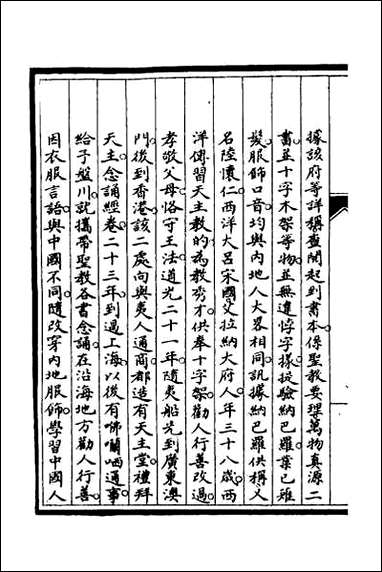 據該府等詳稱查閱起到書本係聖教要理萬物真源二
書並十字木架等物並無違悖字樣提驗納巴羅業已薙
髮服飾口音均與内地人大畧相同訊據納巴羅供稱又
名陸懷仁西洋大呂宋國父拉納大府人年三十八歲西
洋傳習天主教的為教秀才供奉十字架勸人行善改過
孝敬父母恪守王法道光二十一年隨夷船先到廣東澳
門後到香港該二處向與夷人通商都造有天主堂禮拜
天主念誦經卷二十三年到過上海以後有咈囒哂通事
給子盤川就攜帶聖教各書念誦在沿海地方勸人行善
因衣服言語與中國不同隨改穿内地服飾學習中國人